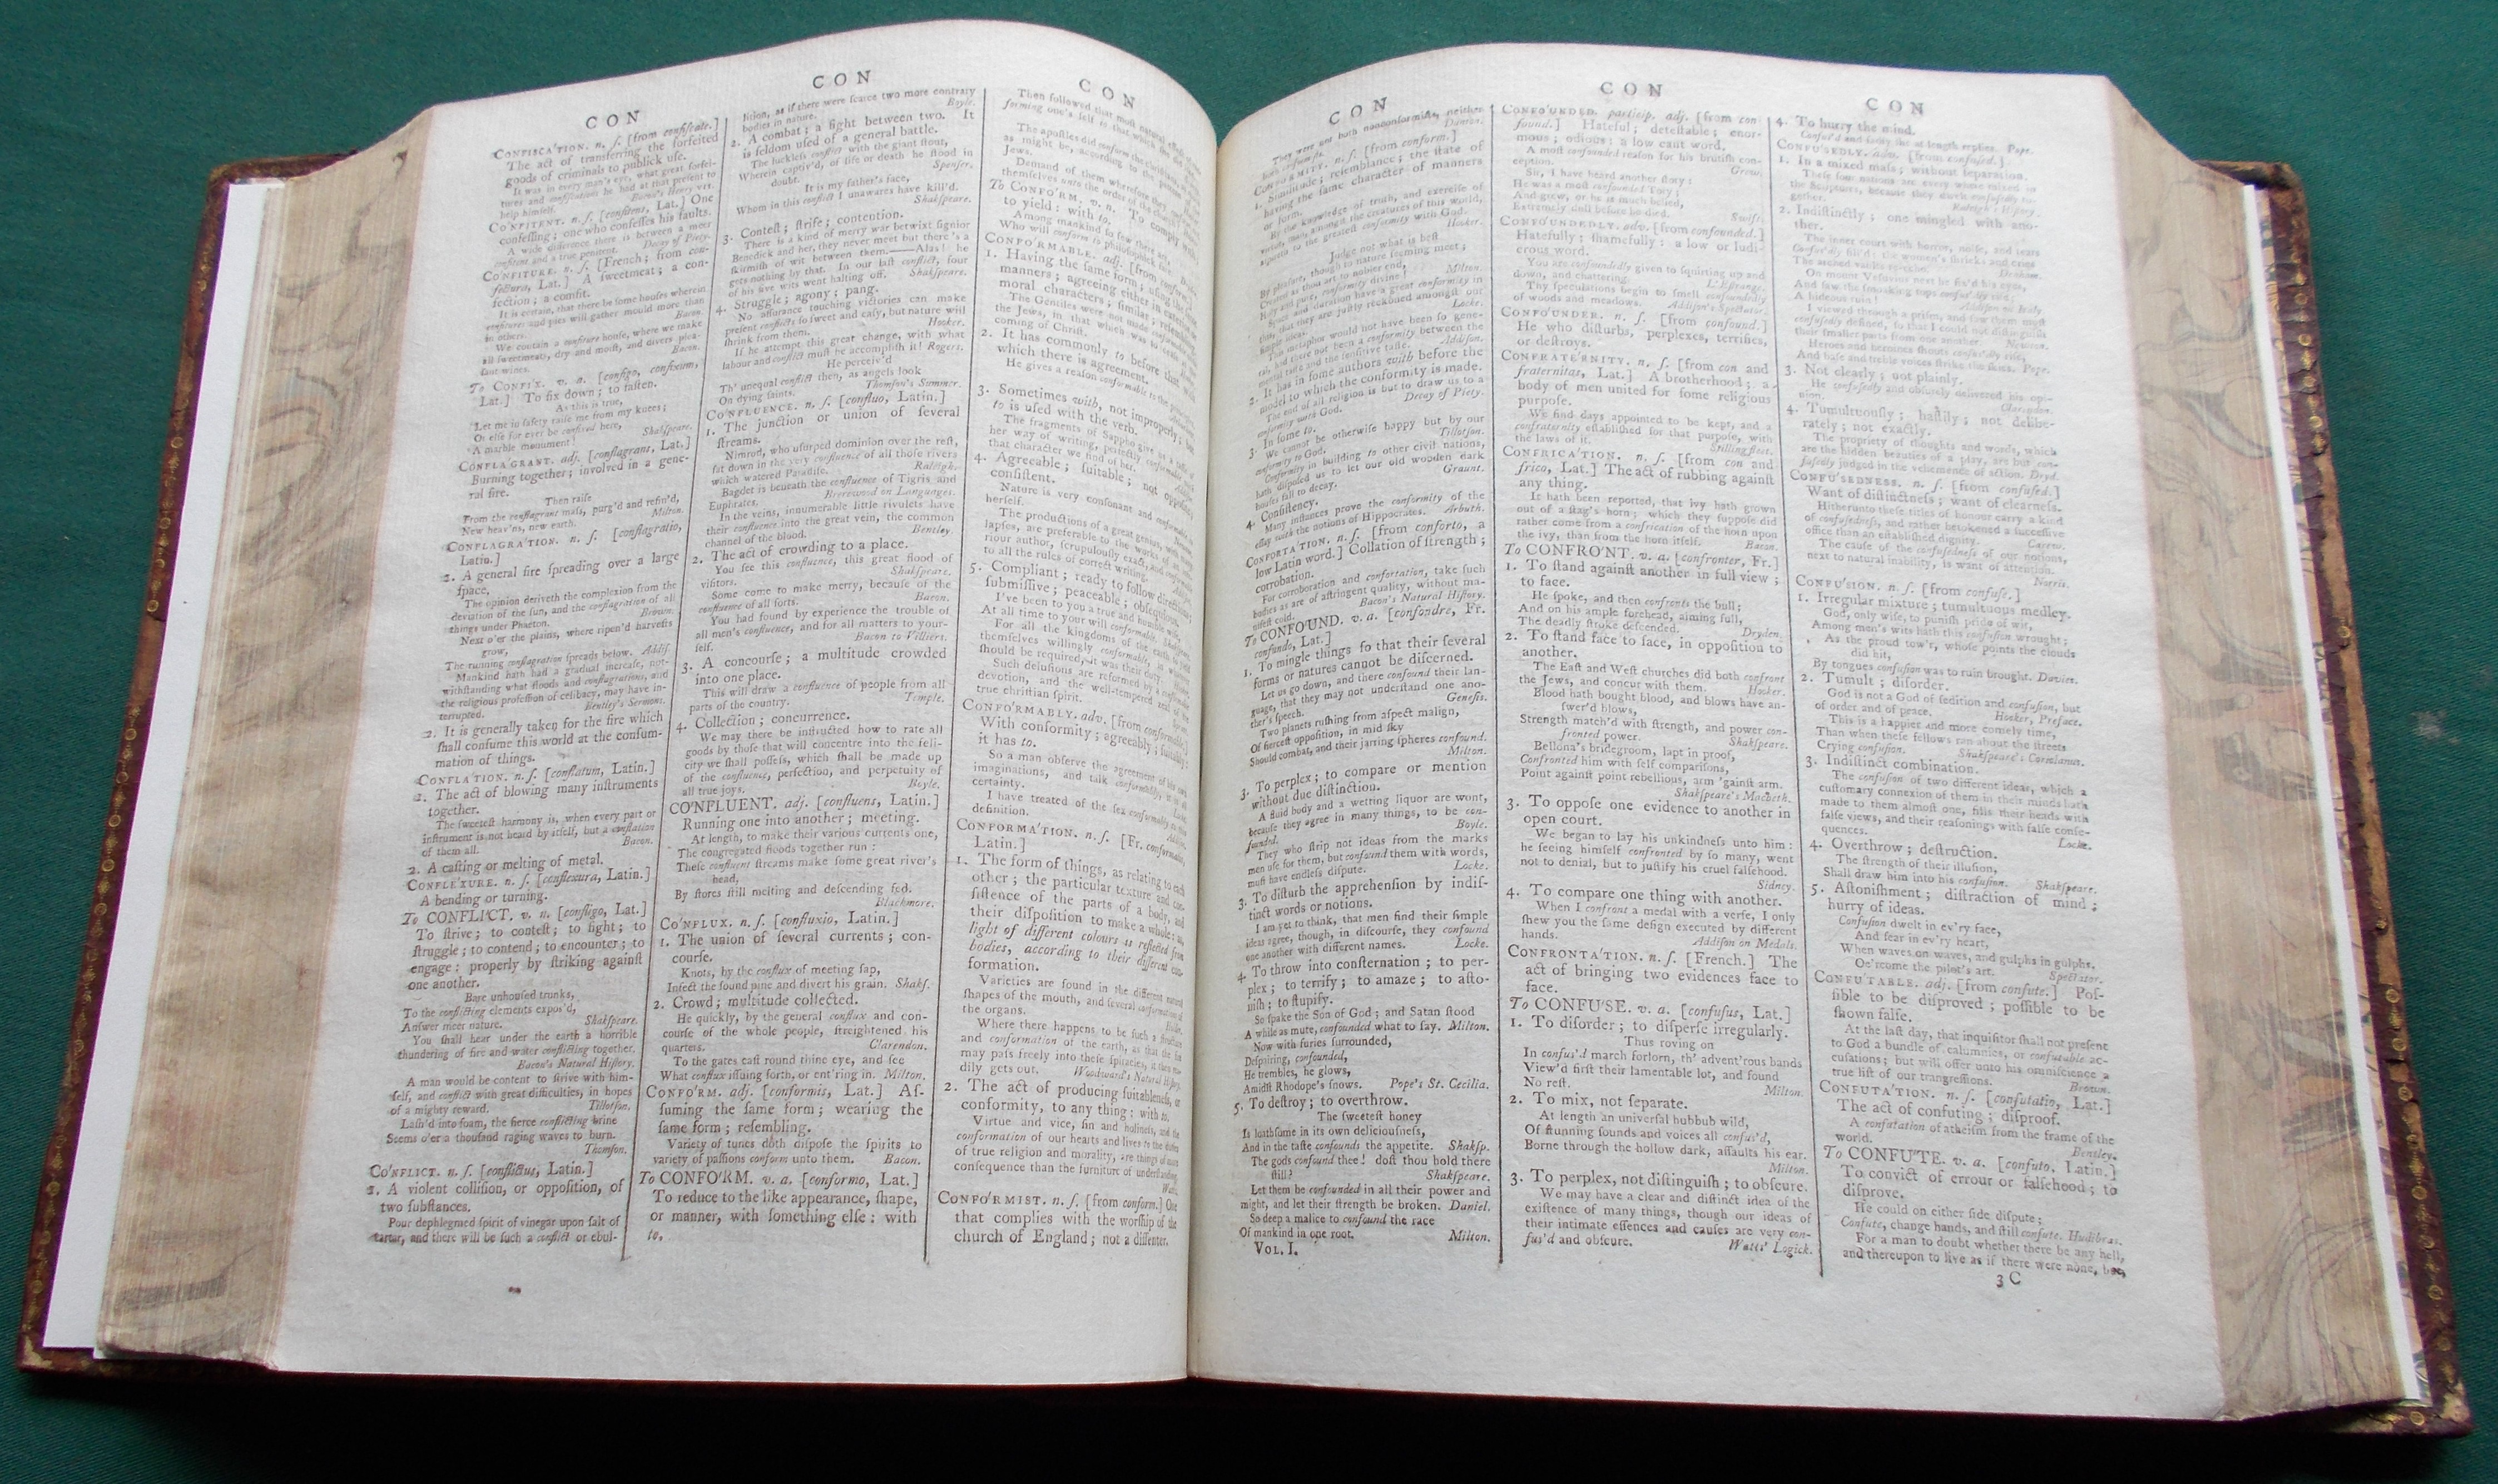 CON
CONFISCA'TION. n. ſ. [from confiſcate.]
The act of transferring the forfeited
goods of criminals to publick uſe.
It was in every man's eye, what great forfei-
tures and confiſcations he had at that preſent to
help himſelf. Bacon's Henry VII.
CO'NFITENT. n. ſ. [confitens, Lat.] One
confeſſing; one who confeſſes his faults.
A wide difference there is between a meer
confitent and a true penitent. Decay of Piety.
CO'NFITURE. n. ſ. [French; from con-
fectura, Lat.] A ſweetmeat; a con-
fection; a comfit.
It is certain, that there be ſome houſes wherein
confitures and pies will gather mould more than
in others. Bacon.
We contain a confiture houſe, where we make
all ſweetmeats, dry and moiſt, and divers plea-
ſant wines. Bacon.
To CONFI'X. v. a. [configo, confixum,
Lat.] To fix down; to faſten.
As this is true,
Let me in ſafety raiſe me from my knees;
Or elſe for ever be confixed here,
A marble monument! Shakſpeare.
CONFLA'GRANT. adj. [conflagrans, Lat.]
Burning together; involved in a gene-
ral fire.
Then raiſe
From the conflagrant maſs, purg'd and refin'd,
New heav'ns, new earth. Milton.
CONFLAGRA'TION. n. ſ. [conflagratio,
Latin.]
1. A general fire ſpreading over a large
ſpace.
The opinion deriveth the complexion from the
deviation of the ſun, and the conflagration of all
things under Phaeton. Brown.
Next o'er the plains, where ripen'd harveſts
grow,
The running conflagration ſpreads below. Addiſ.
Mankind hath had a gradual increaſe, not-
withſtanding what floods and conflagrations, and
the religious profeſſion of celibacy, may have in-
terrupted. Bentley's Sermons.
2. It is generally taken for the fire which
ſhall conſume this world at the conſum-
mation of things.
CONFLA'TION. n. ſ. [conflatum, Latin.]
1. The act of blowing many inſtruments
together.
The ſweeteſt harmony is, when every part or
inſtrument is not heard by itſelf, but a conflation
of them all. Bacon.
2. A caſting or melting of metal.
CONFLE'XURE. n. ſ. [conflexura, Latin.]
A bending or turning.
To CONFLI'CT. v. n. [confligo, Lat.]
To ſtrive; to conteſt; to fight; to
ſtruggle; to contend; to encounter; to
engage: properly by ſtriking againſt
one another.
Bare unhouſed trunks,
To the conflicting elements expos'd,
Anſwer meer nature. Shakſpeare.
You ſhall hear under the earth a horrible
thundering of fire and water conflicting together.
Bacon's Natural Hiſtory.
A man would be content to ſtrive with him-
ſelf, and conflict with great difficulties, in hopes
of a mighty reward. Tillotſon.
Laſh'd into foam, the fierce conflicting brine
Seems o'er a thouſand raging waves to burn.
Thomſon.
CO'NFLICT. n. ſ. [conflictus, Latin.]
1. A violent colliſion, or oppoſition, of
two ſubſtances.
Pour dephlegmed ſpirit of vinegar upon ſalt of
tartar, and there will be ſuch a conflict or ebul-
CON
lition, as if there were ſcarce two more contrary
bodies in nature. Boyle.
2. A combat; a fight between two. It
is ſeldom uſed of a general battle.
The luckleſs conflict with the giant ſtout,
Wherein captiv'd, of life or death he ſtood in
doubt. Spenſer.
It is my father's face,
Whom in this conflict I unawares have kill'd.
Shakſpeare.
3. Conteſt; ſtrife; contention.
There is a kind of merry war betwixt ſignior
Benedick and her, they never meet but there's a
ſkirmiſh of wit between them——Alas! he
gets nothing by that. In our laſt conflict, four
of his five wits went halting off. Shakſpeare.
4. Struggle; agony; pang.
No aſſurance touching victories can make
preſent conflicts ſo ſweet and eaſy, but nature will
ſhrink from them. Hooker.
If he attempt this great change, with what
labour and conflict muſt he accompliſh it! Rogers.
He perceiv'd
Th' unequal conflict then, as angels look
On dying ſaints. Thomſon's Summer.
CO'NFLUENCE. n. ſ. [confluo, Latin.]
1. The junction or union of ſeveral
ſtreams.
Nimrod, who uſurped dominion over the reſt,
ſat down in the very confluence of all thoſe rivers
which watered Paradiſe. Raleigh.
Bagdet is beneath the confluence of Tigris and
Euphrates. Brerewood on Languages.
In the veins, innumerable little rivulets have
their confluence into the great vein, the common
channel of the blood. Bentley.
2. The act of crowding to a place.
You ſee this confluence, this great flood of
viſitors. Shakſpeare.
Some come to make merry, becauſe of the
confluence of all ſorts. Bacon.
You had found by experience the trouble of
all men's confluence, and for all matters to your-
ſelf. Bacon to Villiers.
3. A concourſe; a multitude crowded
into one place.
This will draw a confluence of people from all
parts of the country. Temple.
4. Collection; concurrence.
We may there be inſtructed how to rate all
goods by thoſe that will concentre into the feli-
city we ſhall poſſeſs, which ſhall be made up
of the confluence, perfection, and perpetuity of
all true joys. Boyle.
CO'NFLUENT. adj. [confluens, Latin.]
Running one into another; meeting.
At length, to make their various currents one,
The congregated floods together run:
Theſe confluent ſtreams make ſome great river's
head,
By ſtores ſtill melting and deſcending fed.
Blackmore.
CO'NFLUX. n. ſ. [confluxio, Latin.]
1. The union of ſeveral currents; con-
courſe.
Knots, by the conflux of meeting ſap,
Infect the ſound pine and divert his grain. Shakſ.
2. Crowd; multitude collected.
He quickly, by the general conflux and con-
courſe of the whole people, ſtreightened his
quarters. Clarendon.
To the gates caſt round thine eye, and ſee
What conflux iſſuing forth, or ent'ring in. Milton.
CONFO'RM. adj. [conformis, Lat.] Aſ-
ſuming the ſame form; wearing the
ſame form; reſembling.
Variety of tunes doth diſpoſe the ſpirits to
variety of paſſions conform unto them. Bacon.
To CONFO'RM. v. a. [conformo, Lat.]
To reduce to the like appearance, ſhape,
or manner, with ſomething elſe: with
to.
CON
Then followed that moſt natural effect of con-
forming one's ſelf to that which
The apoſtles did conform the chriſtians, as
might be, according to the pattern of the
Jews.
Demand of them wherefore they
themſelves unto the order of the church
To CONFO'RM. v. n. To comply with;
to yield: with to.
Among mankind ſo few there are,
Who will conform to philoſophick fare.
CONFO'RMABLE. adj. [from conform.]
1. Having the ſame form; uſing the ſame
manners; agreeing either in exteriour or
moral characters; ſimilar; reſembling.
The Gentiles were not made conformable unto
the Jews, in that which was to ceaſe at the
coming of Chriſt.
2. It has commonly to before that with
which there is agreement.
He gives a reaſon conformable to the principles.
3. Sometimes with, not improperly; but
to is uſed with the verb.
The fragments of Sappho give us a taſte of
her way of writing, perfectly conformable with
that character we find of her.
4. Agreeable; ſuitable; not oppoſite;
conſiſtent.
Nature is very conſonant and conformable to
herſelf.
The productions of a great genius, with many
lapſes, are preferable to the works of an infe-
riour author, ſcrupulouſly exact, and conformable
to all the rules of correct writing.
5. Compliant; ready to follow directions;
ſubmiſſive; peaceable; obſequious.
I've been to you a true and humble wife,
At all time to your will conformable. Shakſpeare.
For all the kingdoms of the earth to yield
themſelves willingly conformable, in whatever
ſhould be required, it was their duty.
Such deluſions are reformed by a conformable
devotion, and the well-tempered zeal of the
true chriſtian ſpirit.
CONFO'RMABLY. adv. [from conformable.]
With conformity; agreeably; ſuitably:
it has to.
So a man obſerve the agreement of his own
imaginations, and talk conformably, it is all
certainty.
I have treated of the ſex conformably to this
definition.
CONFORMA'TION. n. ſ. [Fr. conformatio,
Latin.]
1. The form of things, as relating to each
other; the particular texture and con-
ſiſtence of the parts of a body, and
their diſpoſition to make a whole: as,
light of different colours is reflected from
bodies, according to their different con-
formation.
Varieties are found in the different natural
ſhapes of the mouth, and ſeveral conformations of
the organs. Holder.
Where there happens to be ſuch a ſtructure
and conformation of the earth, as that the fire
may paſs freely into theſe ſpiracles, it then rea-
dily gets out. Woodward's Natural Hiſtory.
2. The act of producing ſuitableneſs, or
conformity, to any thing: with to.
Virtue and vice, ſin and holineſs, and the
conformation of our hearts and lives to the duties
of true religion and morality, are things of more
conſequence than the furniture of underſtanding.
Watts.
CONFO'RMIST. n. ſ. [from conform.] One
that complies with the worſhip of the
church of England; not a diſſenter.
CON
They were not both nonconformiſts, neither
both conformiſts. Dunton.
CONFO'RMITY. n. ſ. [from conform.]
1. Similitude; reſemblance; the ſtate of
having the ſame character of manners
or form.
By the knowledge of truth, and exerciſe of
virtue, man, amongſt the creatures of this world,
aſpireth to the greateſt conformity with God.
Hooker.
Judge not what is beſt
By pleaſure, though to nature ſeeming meet;
Created as thou art to nobler end,
Holy and pure, conformity divine! Milton.
Space and duration have a great conformity in
this, that they are juſtly reckoned amongſt our
ſimple ideas. Locke.
This metaphor would not have been ſo gene-
ral, had there not been a conformity between the
mental taſte and the ſenſitive taſte. Addiſon.
2. It has in ſome authors with before the
model to which the conformity is made.
The end of all religion is but to draw us to a
conformity with God. Decay of Piety.
3. In ſome to.
We cannot be otherwiſe happy but by our
conformity to God. Tillotſon.
Conformity in building to other civil nations,
hath diſpoſed us to let our old wooden dark
houſes fall to decay. Graunt.
4. Conſiſtency.
Many inſtances prove the conformity of the
eſſay with the notions of Hippocrates. Arbuth.
CONFORTA'TION. n. ſ. [from conforto, a
low Latin word.] Collation of ſtrength;
corroboration.
For corroboration and confortation, take ſuch
bodies as are of aſtringent quality, without ma-
nifeſt cold. Bacon's Natural Hiſtory.
To CONFO'UND. v. a. [confondre, Fr.
confundo, Lat.]
1. To mingle things ſo that their ſeveral
forms or natures cannot be diſcerned.
Let us go down, and there confound their lan-
guage, that they may not underſtand one ano-
ther's ſpeech. Geneſis.
Two planets ruſhing from aſpect malign,
Of fierceſt oppoſition, in mid ſky
Should combat, and their jarring ſpheres confound.
Milton.
2. To perplex; to compare or mention
without due diſtinction.
A fluid body and a wetting liquor are wont,
becauſe they agree in many things, to be con-
founded. Boyle.
They who ſtrip not ideas from the marks
men uſe for them, but confound them with words,
muſt have endleſs diſpute. Locke.
3. To diſturb the apprehenſion by indiſ-
tinct words or notions.
I am yet to think, that men find their ſimple
ideas agree, though, in diſcourſe, they confound
one another with different names. Locke.
4. To throw into conſternation; to per-
plex; to terrify; to amaze; to aſto-
niſh; to ſtupify.
So ſpake the Son of God; and Satan ſtood
A while as mute, confounded what to ſay. Milton.
Now with furies ſurrounded,
Deſpairing, confounded,
He trembles, he glows,
Amidſt Rhodope's ſnows. Pope's St. Cecilia.
5. To deſtroy; to overthrow.
The ſweeteſt honey
Is loathſome in its own deliciouſneſs,
And in the taſte confounds the appetite. Shakſp.
The gods confound thee! doſt thou hold there
ſtill? Shakſpeare.
Let them be confounded in all their power and
might, and let their ſtrength be broken. Daniel.
So deep a malice to confound the race
Of mankind in one root. Milton.
VOL. I.
CON
CONFO'UNDED. particip. adj. [from con-
found.] Hateful; deteſtable; enor-
mous; odious: a low cant word.
A moſt confounded reaſon for his brutiſh con-
ception. Grew.
Sir, I have heard another ſtory;
He was a moſt confounded Tory;
And grew, or he is much belied,
Extremely dull before he died. Swift.
CONFO'UNDEDLY. adv. [from confounded.]
Hatefully; ſhamefully: a low or ludi-
crous word.
You are confoundedly given to ſquirting up and
down, and chattering. L'Eſtrange.
Thy ſpeculations begin to ſmell confoundedly
of woods and meadows. Addiſon's Spectator.
CONFO'UNDER. n. ſ. [from confound.]
He who diſturbs, perplexes, terrifies,
or deſtroys.
CONFRATE'RNITY. n. ſ. [from con and
fraternitas, Lat.] A brotherhood; a
body of men united for ſome religious
purpoſe.
We find days appointed to be kept, and a
confraternity eſtabliſhed for that purpoſe, with
the laws of it. Stillingfleet.
CONFRICA'TION. n. ſ. [from con and
frico, Lat.] The act of rubbing againſt
any thing.
It hath been reported, that ivy hath grown
out of a ſtag's horn; which they ſuppoſe did
rather come from a confrication of the horn upon
the ivy, than from the horn itſelf. Bacon.
To CONFRO'NT. v. a. [confronter, Fr.]
1. To ſtand againſt another in full view;
to face.
He ſpoke, and then confronts the bull;
And on his ample forehead, aiming full,
The deadly ſtroke deſcended. Dryden.
2. To ſtand face to face, in oppoſition to
another.
The Eaſt and Weſt churches did both confront
the Jews, and concur with them. Hooker.
Blood hath bought blood, and blows have an-
ſwer'd blows,
Strength match'd with ſtrength, and power con-
fronted power. Shakſpeare.
Bellona's bridegroom, lapt in proof,
Confronted him with ſelf compariſons,
Point againſt point rebellious, arm 'gainſt arm.
Shakſpeare's Macbeth.
3. To oppoſe one evidence to another in
open court.
We began to lay his unkindneſs unto him:
he ſeeing himſelf confronted by ſo many, went
not to denial, but to juſtify his cruel falſehood.
Sidney.
4. To compare one thing with another.
When I confront a medal with a verſe, I only
ſhew you the ſame deſign executed by different
hands. Addiſon on Medals.
CONFRONTA'TION. n. ſ. [French.] The
act of bringing two evidences face to
face.
To CONFU'SE. v. a. [confuſus, Lat.]
1. To diſorder; to diſperſe irregularly.
Thus roving on
In confus'd march forlorn, th' advent'rous bands
View'd firſt their lamentable lot, and found
No reſt. Milton.
2. To mix, not ſeparate.
At length an univerſal hubbub wild,
Of ſtunning ſounds and voices all confus'd,
Borne through the hollow dark, aſſaults his ear.
Milton.
3. To perplex, not diſtinguiſh; to obſcure.
We may have a clear and diſtinct idea of the
exiſtence of many things, though our ideas of
their intimate eſſences and cauſes are very con-
fus'd and obſcure. Watts' Logick.
CON
4. To hurry the mind.
Confus'd and ſadly ſhe at length replies. Pope.
CONFU'SEDLY. adv. [from confuſed.]
1. In a mixed maſs; without ſeparation.
Theſe four nations are every where mixed in
the Scriptures, becauſe they dwelt confuſedly to-
gether. Raleigh's Hiſtory.
2. Indiſtinctly; one mingled with ano-
ther.
The inner court with horror, noiſe, and tears
Confus'dly fill'd; the women's ſhrieks and cries
The arched vaults re-echo. Denham.
On mount Veſuvius next he fix'd his eyes,
And ſaw the ſmoaking tops confus'dly riſe;
A hideous ruin! Addiſon on Italy.
I viewed through a priſm, and ſaw them moſt
confuſedly defined, ſo that I could not diſtinguiſh
their ſmaller parts from one another. Newton.
Heroes and heroines ſhouts confus'dly riſe,
And baſe and treble voices ſtrike the ſkies. Pope.
3. Not clearly; not plainly.
He confuſedly and obſcurely delivered his opi-
nion. Clarendon.
4. Tumultuouſly; haſtily; not delibe-
rately; not exactly.
The propriety of thoughts and words, which
are the hidden beauties of a play, are but con-
fuſedly judged in the vehemence of action. Dryd.
CONFU'SEDNESS. n. ſ. [from confuſed.]
Want of diſtinctneſs; want of clearneſs.
Hitherunto theſe titles of honour carry a kind
of confuſedneſs, and rather betokened a ſucceſſive
office than an eſtabliſhed dignity. Carew.
The cauſe of the confuſedneſs of our notions,
next to natural inability, is want of attention.
Norris.
CONFU'SION. n. ſ. [from confuſe.]
1. Irregular mixture; tumultuous medley.
God, only wiſe, to puniſh pride of wit,
Among men's wits hath this confuſion wrought;
As the proud tow'r, whoſe points the clouds
did hit,
By tongues confuſion was to ruin brought. Davies.
2. Tumult; diſorder.
God is not a God of ſedition and confuſion, but
of order and of peace. Hooker, Preface.
This is a happier and more comely time,
Than when theſe fellows ran about the ſtreets
Crying confuſion. Shakſpeare's Coriolanus.
3. Indiſtinct combination.
The confuſion of two different ideas, which a
cuſtomary connexion of them in their minds hath
made to them almoſt one, fills their heads with
falſe views, and their reaſonings with falſe conſe-
quences. Locke.
4. Overthrow; deſtruction.
The ſtrength of their illuſion,
Shall draw him into his confuſion. Shakſpeare.
5. Aſtoniſhment; diſtraction of mind;
hurry of ideas.
Confuſion dwelt in ev'ry face,
And fear in ev'ry heart,
When waves on waves, and gulphs in gulphs,
O'ercome the pilot's art. Spectator.
CONFU'TABLE. adj. [from confute.] Poſ-
ſible to be diſproved; poſſible to be
ſhown falſe.
At the laſt day, that inquiſitor ſhall not preſent
to God a bundle of calumnies, or confutable ac-
cuſations; but will offer unto his omniſcience a
true liſt of our tranſgreſſions. Brown.
CONFUTA'TION. n. ſ. [confutatio, Lat.]
The act of confuting; diſproof.
A confutation of atheiſm from the frame of the
world. Bentley.
To CONFU'TE. v. a. [confuto, Latin.]
To convict of errour or falſehood; to
diſprove.
He could on either ſide diſpute;
Confute, change hands, and ſtill confute. Hudibras.
For a man to doubt whether there be any hell,
and thereupon to live as if there were none, but,
3 C